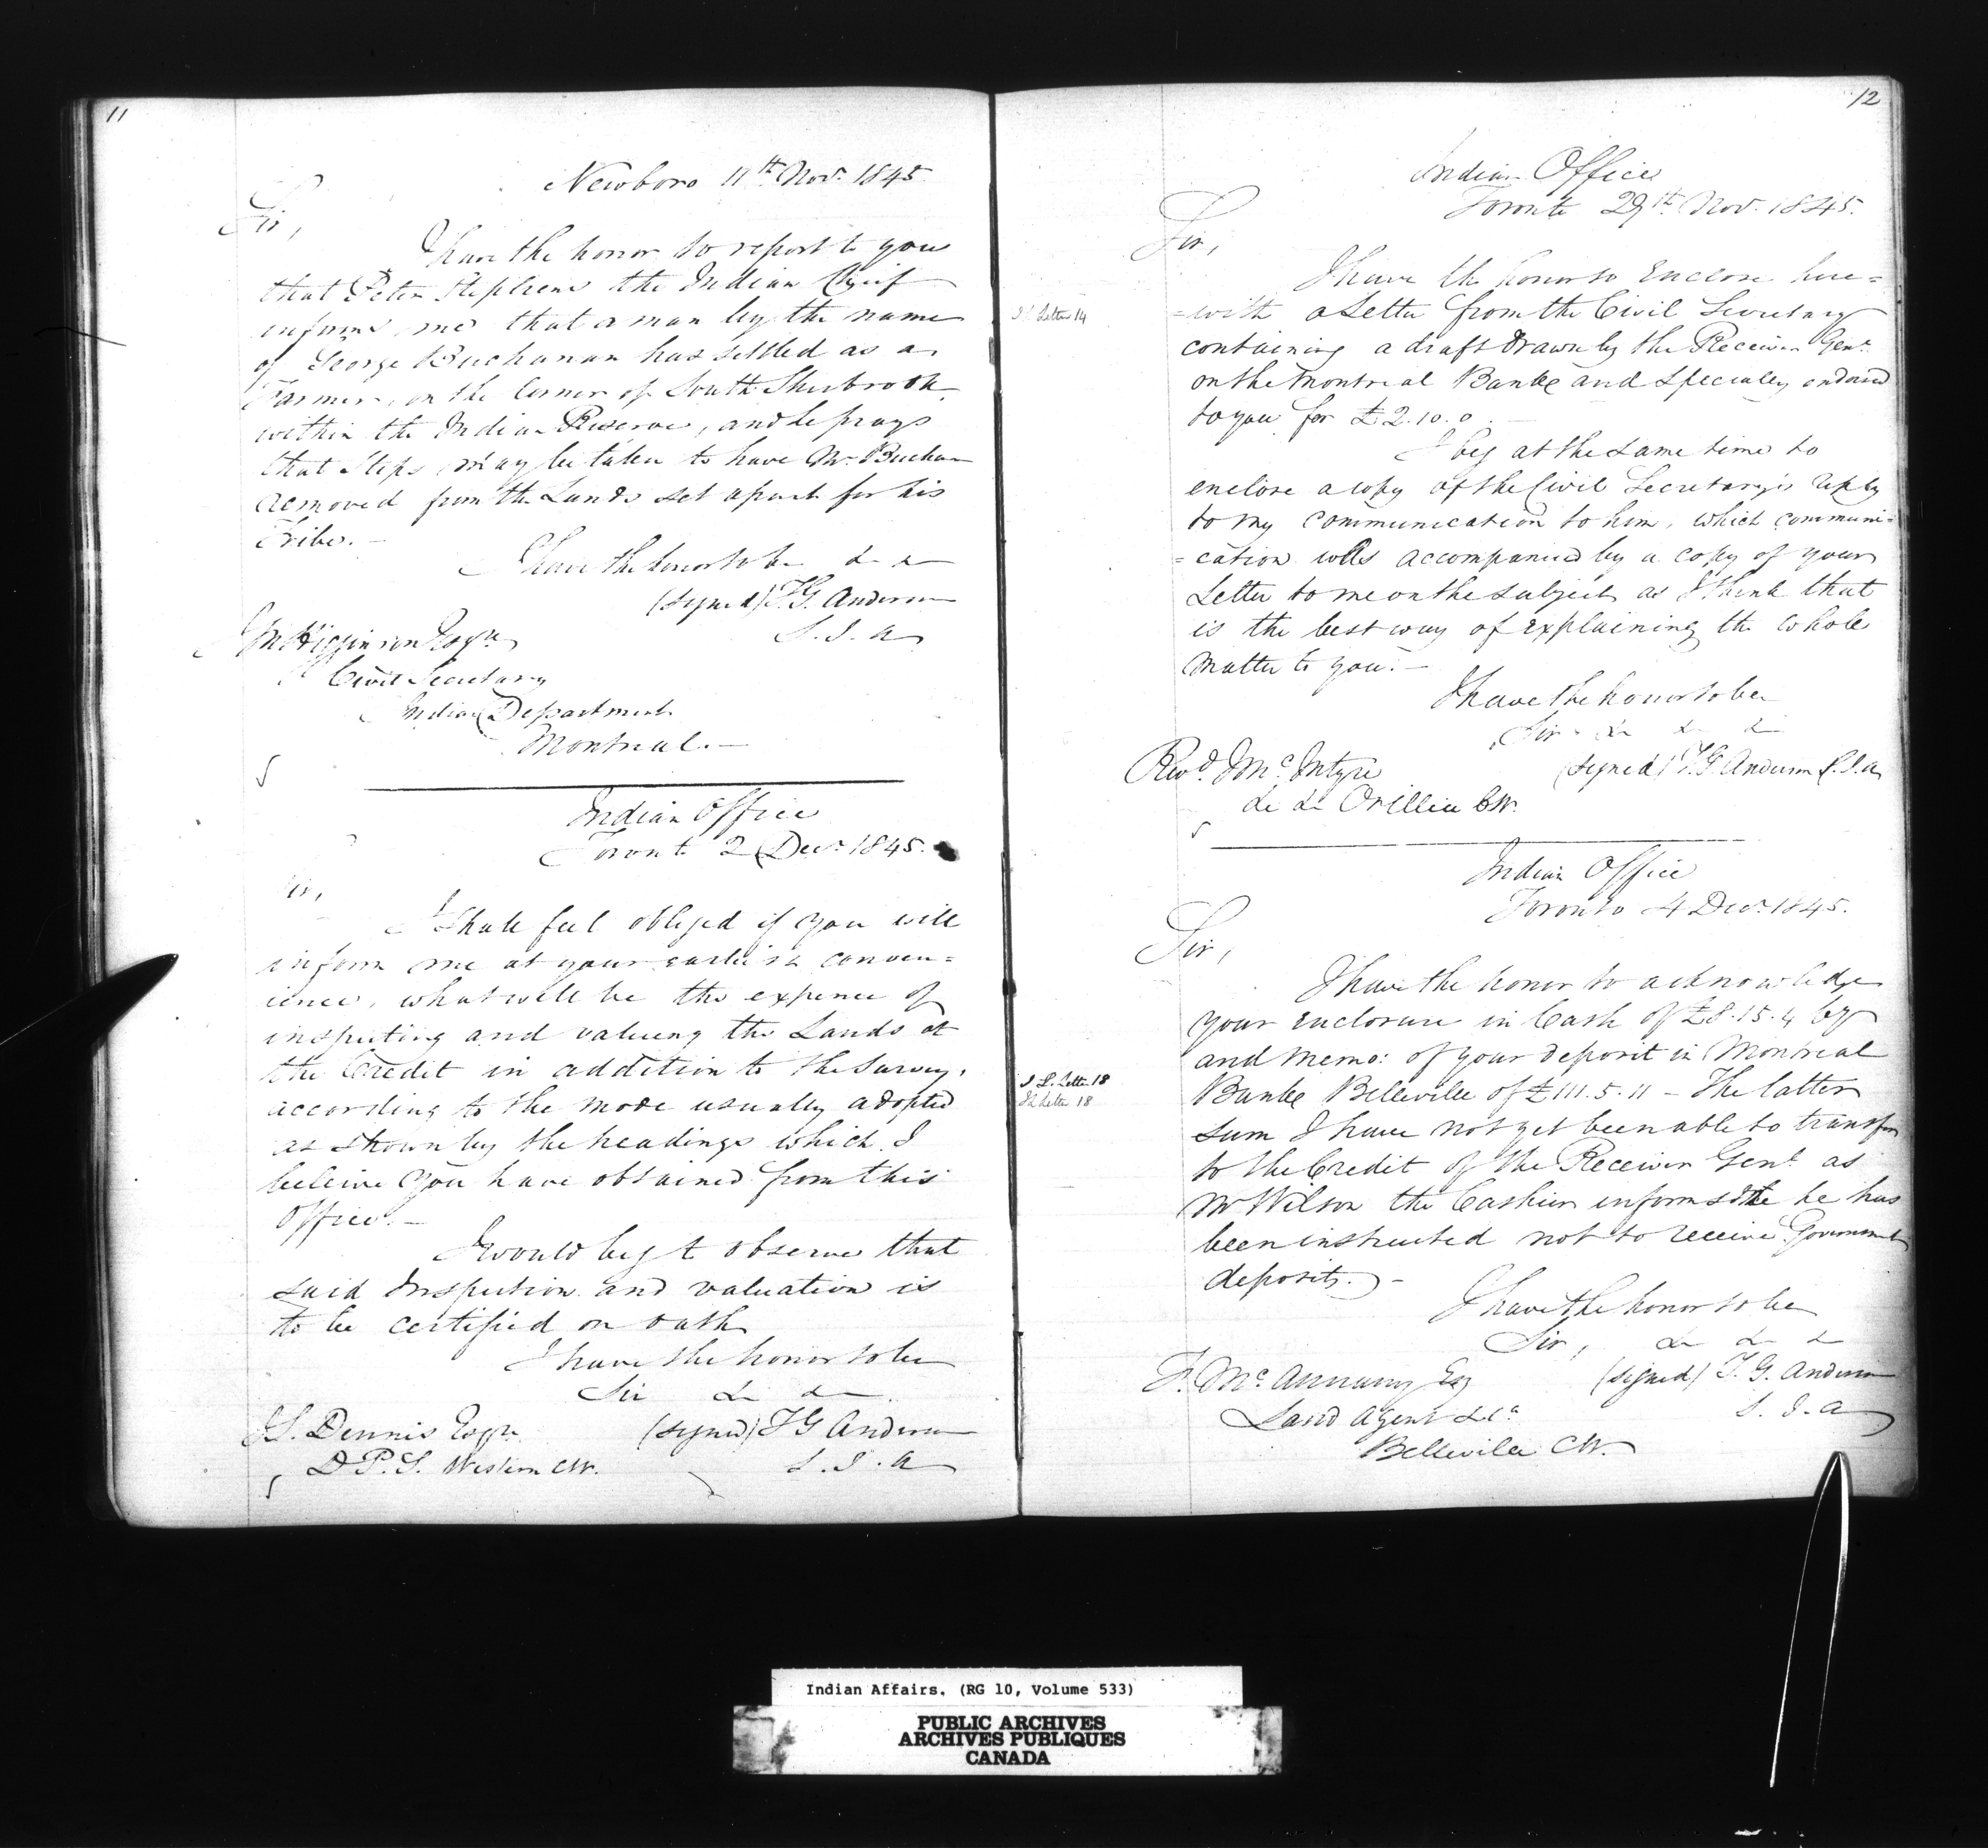 11
Newboro 11th Novr 1845
Sir,
I have the honor to report to you
that Peter Stephens the Indian Chief
informs me that a man by the name
of George Buchanan has settled as a
Farmer, on the Corner of South Sherbrook
within the Indian Reserve, and he prays
that Steps may be taken to have Mr Buchan
removed from the Lands set apart for his
Tribe. —
I have the honor to be &c &c
(signed) T.G. Anderson
S. I. A
J M Higginson Esqre
Civil Secretary
Indian Department
Montreal. —
Indian Office
Toronto 2 Decr 1845.
Sir,
I shall feel obliged if you will
inform me at your earliest conven=
ience, what will be the expence of
inspecting and valueing the Lands at
the Credit in addition to the Survey,
according to the mode usually adopted
as shown by the headings which I
beleive you have obtained from this
Office. —
I would beg to observe that
said Inspection and valuation is
to be certified on oath
I have the honor to be
Sir &c &c
J S. Dennis Esqre (signed) T G Anderson
D. P. S. Weston CW. S. I. A
12
Indian Office
Toronto 29th Nov. 1845.
Sir,
I have the honor to Enclose here=
=with a Letter from the Civil Secretary
containing a draft drawn by the Receiver Genl
on the Montreal Bank and specialey endorsed
to you for £2.10.0
I beg at the same time to
enclose a copy of the Civil Secretary's reply
to my communication to him, which communi=
=cation was accompanied by a copy of your
Letter to me on the subject as I think that
is the best way of explaining the whole
matter to you. —
I have the honor to be
Sir &c &c &c
Revd J McIntyre (signed) T.G. Anderson S.I.A
&c &c Orillia CW.
Indian Office
Toronto 4 Decr 1845.
Sir,
I have the honor to acknowledge
your enclosure in Cash of £8.15.4 Cy
and memo: of your deposit in Montreal
Bank Belleville of £111.5.11 — The latter
sum I have not yet been able to transfer
to the Credit of the Receiver Genl as
Mr Wilson the Cashier informs me he has
been instructed not to receive Government
deposits. —
I have the honor to be
Sir, &c &c &c
F. McAnnany Esq (signed) T. G. Anderson
Land Agent &ca S. I. A
Belleville CW.
Letter 14
I L. Letter 18
Letter 18
Indian Affairs. (RG 10, Volume 533)
PUBLIC ARCHIVES
ARCHIVES PUBLIQUES
CANADA